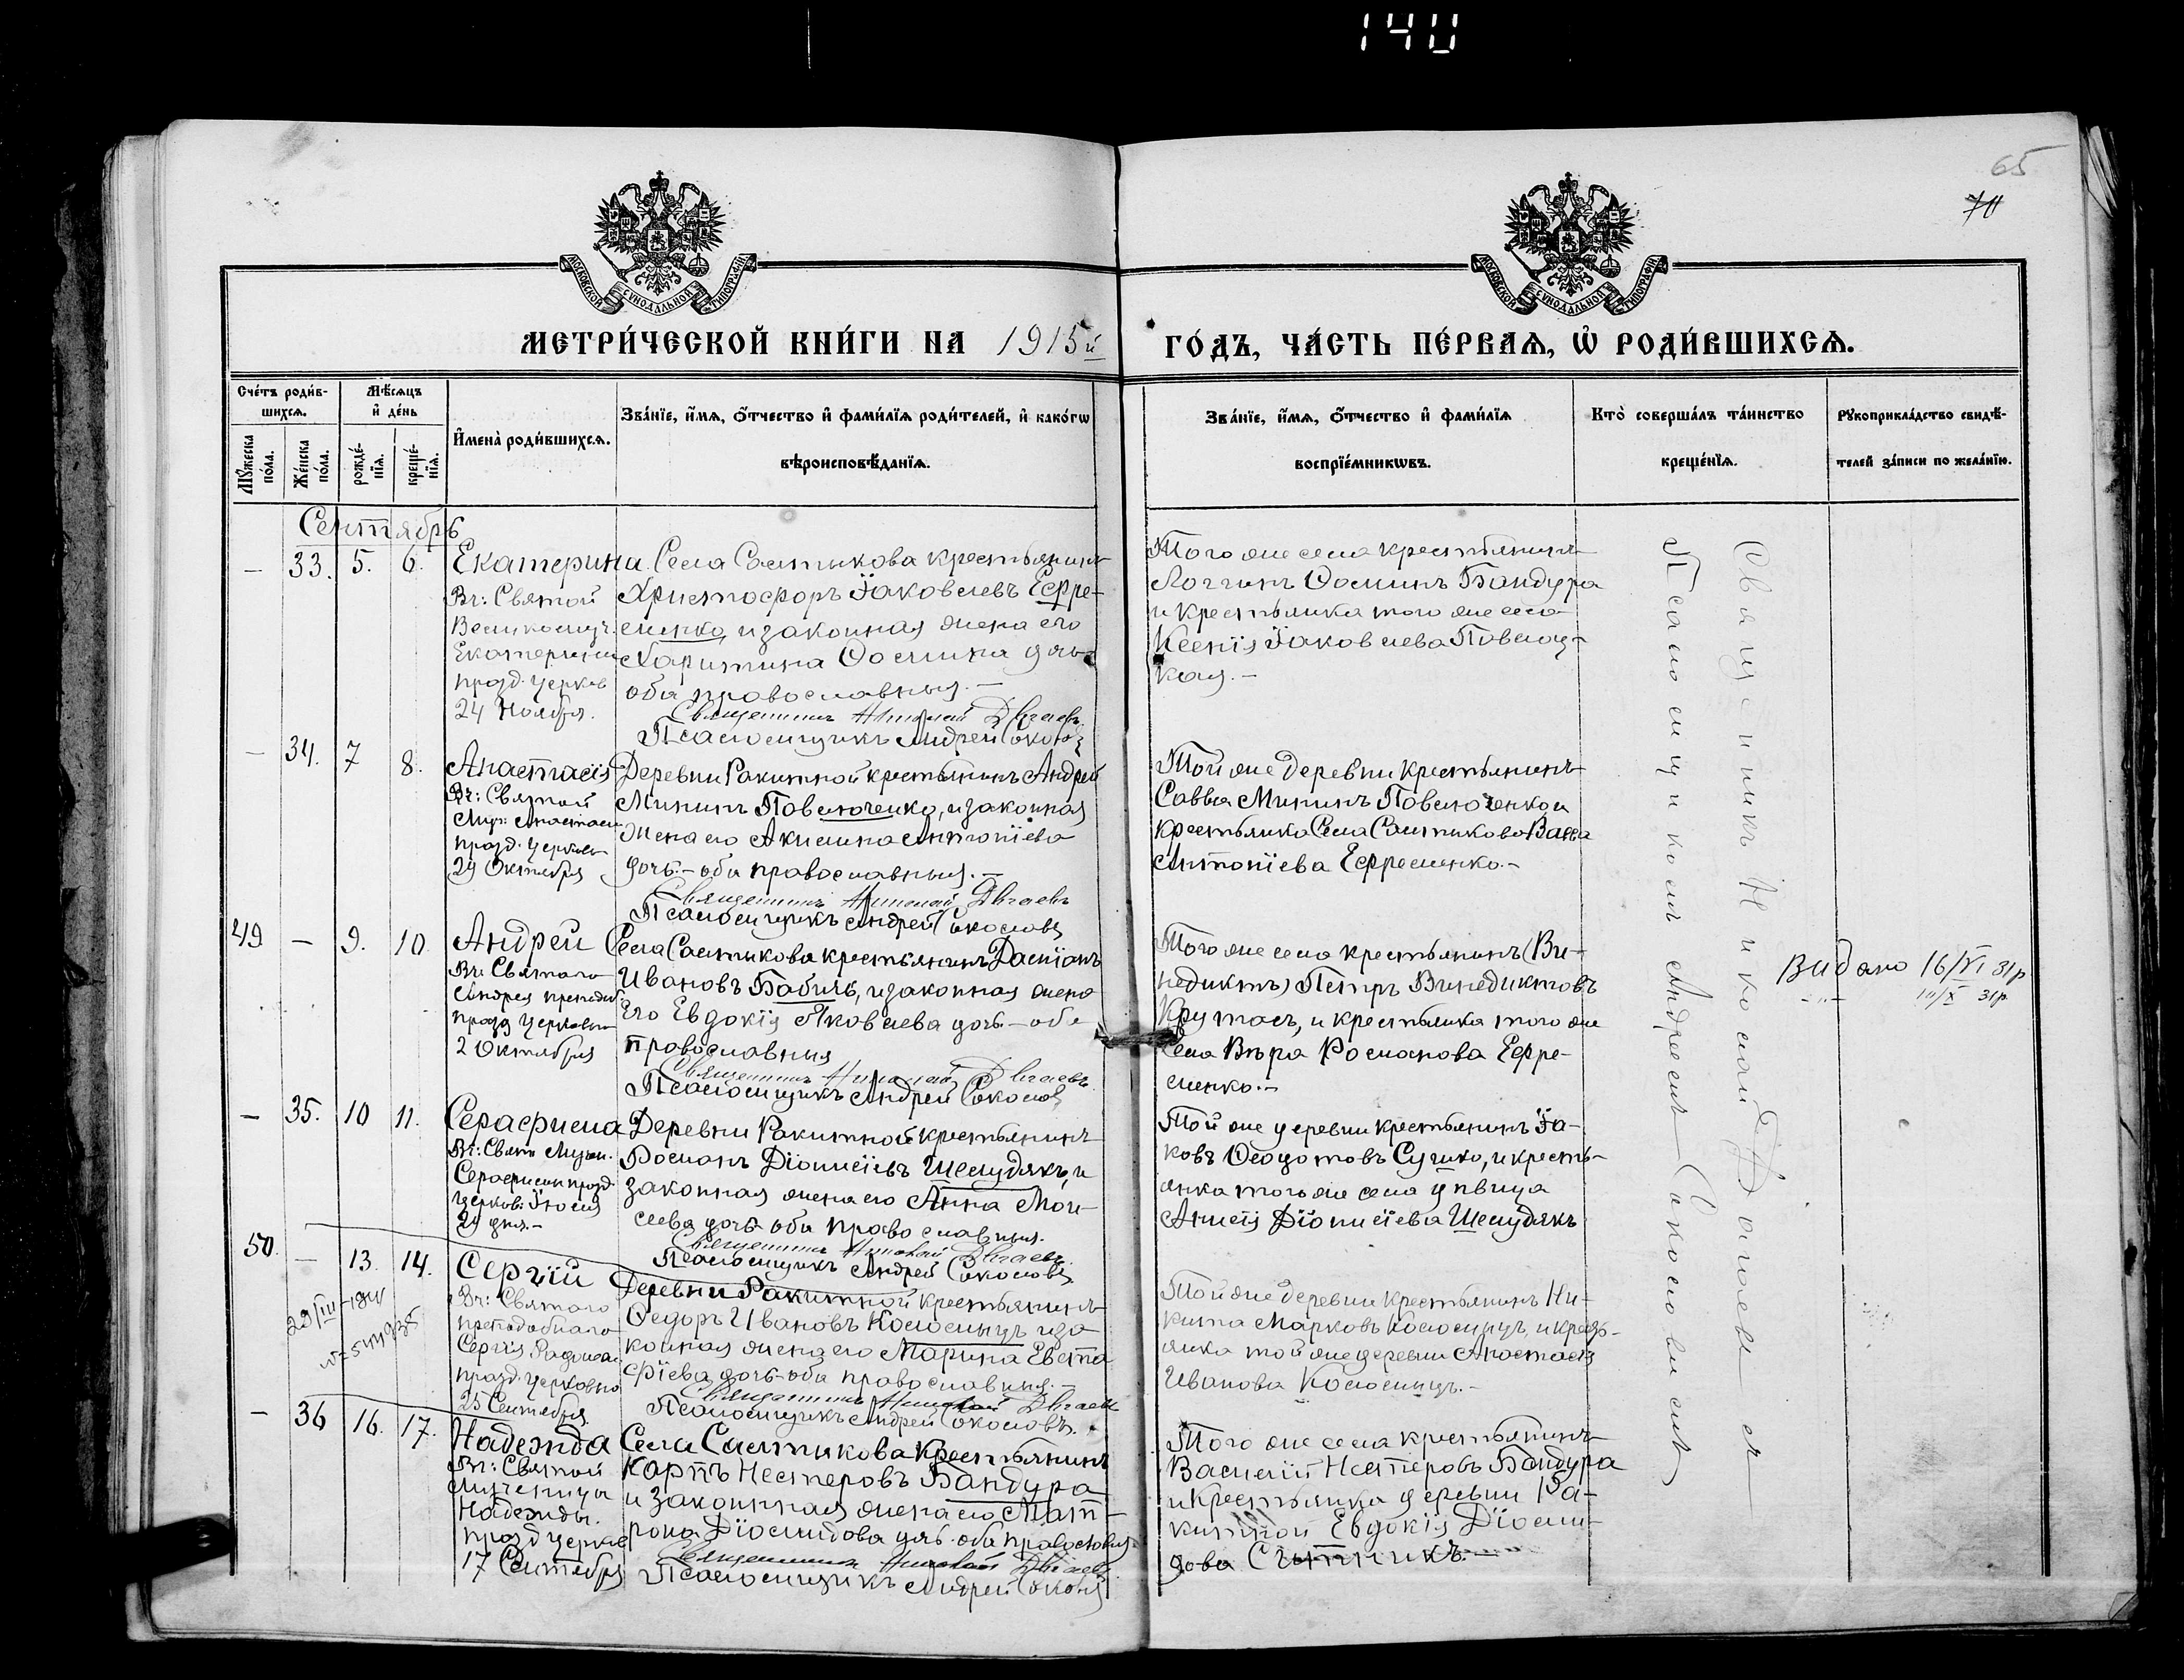 140
65
70
МОСКОВСКОЙ СѴНОДАЛЬНОЙ ТИПОГРАФІИ
МОСКОВСКОЙ СѴНОДАЛЬНОЙ ТИПОГРАФІИ
МЕТРИ́ЧЕСКОЙ КНИ́ГИ НА 1915й
ГО́ДЪ, ЧА́СТЬ ПЕ́РВАЯ, Ѡ҆ РОДИ́ВШИХСЯ.
Сче́тъ роди́в-
шихся.
Мѣ́сяцъ
и҆ де́нь
Мꙋ́жеска по́ла.
Же́нска по́ла.
рожде́-
нїя.
креще́-
нїя.
И҆мена̀ роди́вшихся.
Зва́нїе, и҆́мя, ѻ҆́тчество и҆ фами́лїя роди́телей, и҆ како́гѡ
вѣроисповѣ́данїя.
Зва́нїе, и҆́мя, ѻ҆́тчество и҆ фами́лїя
воспрїе́мникѡвъ.
Кто̀ соверша́лъ та́инство
креще́нїя.
Рꙋкоприкла́дство свидѣ́-
телей за́писи по жела́нїю.
Сентябрь
— 33. 5. 6.
Екатерина
Вч: Святой
Великомуч.
Екатерины
празд. церков
24 Ноября.
Села Салтыкова крестьянинъ
Христофоръ Іаковлевъ Ефре-
менко, и законная жена его
Харитина Ѳомина дочь
оба православныя. —
Священникъ Николай
Псаломщикъ Андрей Соколов
Того же села крестьянинъ
Логгинъ Ѳоминъ Бандура
и крестьянка того же села
Ксенія Іаковлева Повелоц-
кая. —
— 34. 7 8.
Анастасія
Вч: Святой
Муч: Анастасіи
празд. церковн
29 Октября
Деревни Ракитной крестьянинъ Андрей
Мининъ Повелюченко, и законная
жена его Акилина Антоніева
дочь. — оба православныя. —
Священникъ Николай
Псаломщикъ Андрей Соколовъ
Той же деревни крестьянинъ
Савва Мининъ Повелюченко и
крестьянка Села Салтыкова Васса
Антоніева Ефременко. —
49 — 9. 10.
Андрей
Вч: Святаго
Андрея преподоб
празд церковно
2 Октября
Села Салтыкова крестьянинъ Даміанъ
Ивановъ Бабичъ, и законная жена
Его Евдокія Яковлева дочь — оба
православныя
Священникъ Николай
Псаломщикъ Андрей Соколов
Того же села крестьянинъ (Ви-
недиктъ) Петръ Винедиктовъ
Крутась, и крестьянка того же
Села Вѣра Романова Ефре-
менко. —
Видано 16/VI 31р
-"- 10/X 31р.
— 35. 10 11.
Серафима
Вч: Свят Мучен.
Серафимы празд.
церков: Іюля
29 дня. —
Деревни Ракитной крестьянинъ
Романъ Діонисіевъ Шемудякъ, и
законная жена его Анна Мои-
сеева дочь оба православныя.
Священникъ Николай
Псаломщикъ Андрей Соколовъ
Той же деревни крестьянинъ Іа-
ковъ Ѳедотовъ Сушко, и кресть-
янка того же села дѣвица
Анисія Діонисіева Шемудякъ
50. — 13. 14.
Сергій
Вч: Святаго
преподобнаго
Сергія Радонеж
празд. церковно
25 Сентября.
Деревни Ракитной крестьянинъ
Ѳедоръ Ивановъ Коломыцъ и за-
конная жена его Марина Евста-
фіева дочь — оба православныя. —
Священникъ Николай
Псаломщикъ Андрей Соколовъ.
Той же деревни крестьянинъ Ни-
кита Марковъ Коломыцъ, и кресть-
янка той же деревни Анастасія
Иванова Коломыцъ. —
— 36 16. 17.
Надежда
Вч: Святой
Мученицы
Надежды.
празд церков
17 Сентября
Села Салтыкова крестьянинъ
Карпъ Нестеровъ Бандура
и законная жена его Мат-
рона Діомидова дочь. оба православныя
Священникъ Николай
Псаломщикъ Андрей Соколов
Того же села крестьянинъ
Василій Нестеровъ Бандура
и Крестьянка деревни Ра-
китной Евдокія Діоми-
дова Сытникъ. —
Священникъ Николай
Псаломщикомъ Андреемъ Соколовымъ